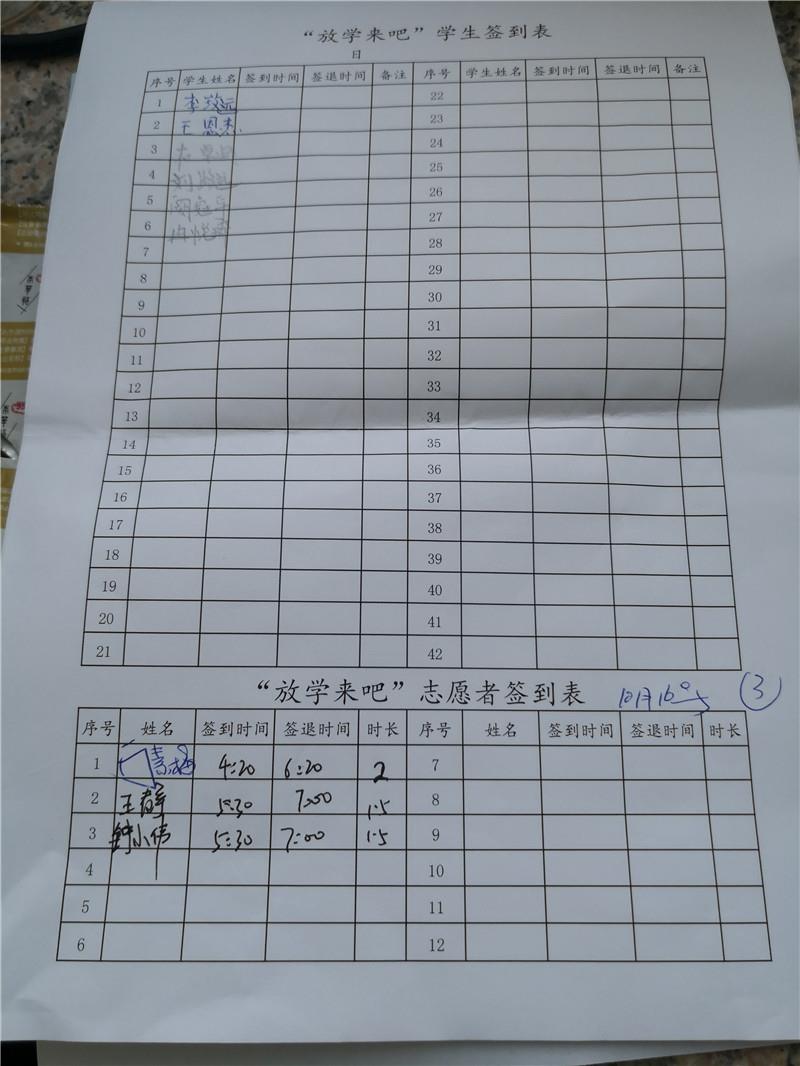 “放学来吧”学生签到表
日
序号 学生姓名 签到时间 签退时间 备注 序号 学生姓名 签到时间 签退时间 备注
1 李 22
2 王恩杰 23
3 24
4 刘 25
5 26
6 27
7 28
8 29
9 30
10 31
11 32
12 33
13 34
14 35
15 36
16 37
17 38
18 39
19 40
20 41
21 42
“放学来吧”志愿者签到表 10月16日 3
序号 姓名 签到时间 签退时间 时长 序号 姓名 签到时间 签退时间 时长
1 4:20 6:20 2 7
2 王 5:30 7:00 1.5 8
3 钟小伟 5:30 7:00 1.5 9
4 10
5 11
6 12